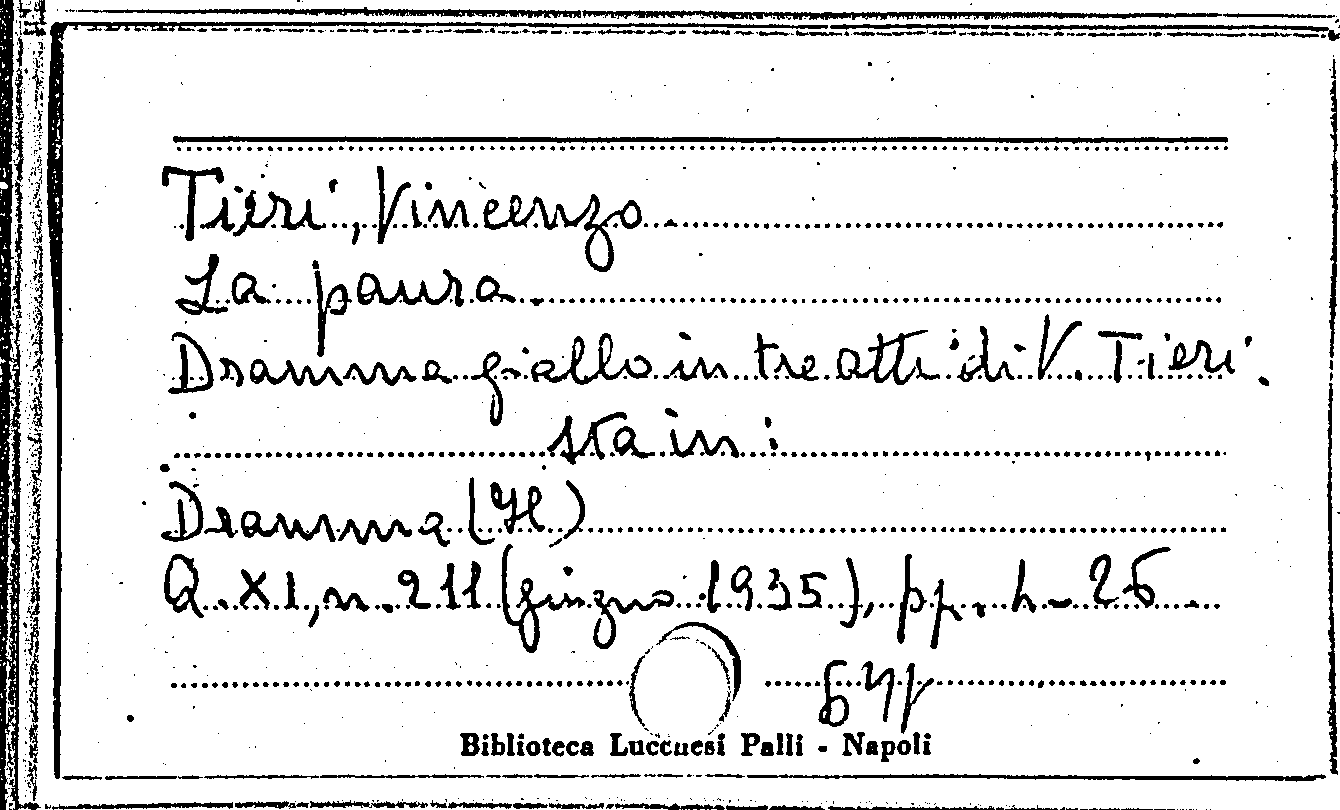 Tieri, Vincenzo.
La paura.
Dramma giallo in tre atti di V. Tieri.
sta in:
Dramma (Il)
a. XI, n. 211 (giugno 1935), pp. 4-26.
Biblioteca Lucchesi Palli - Napoli